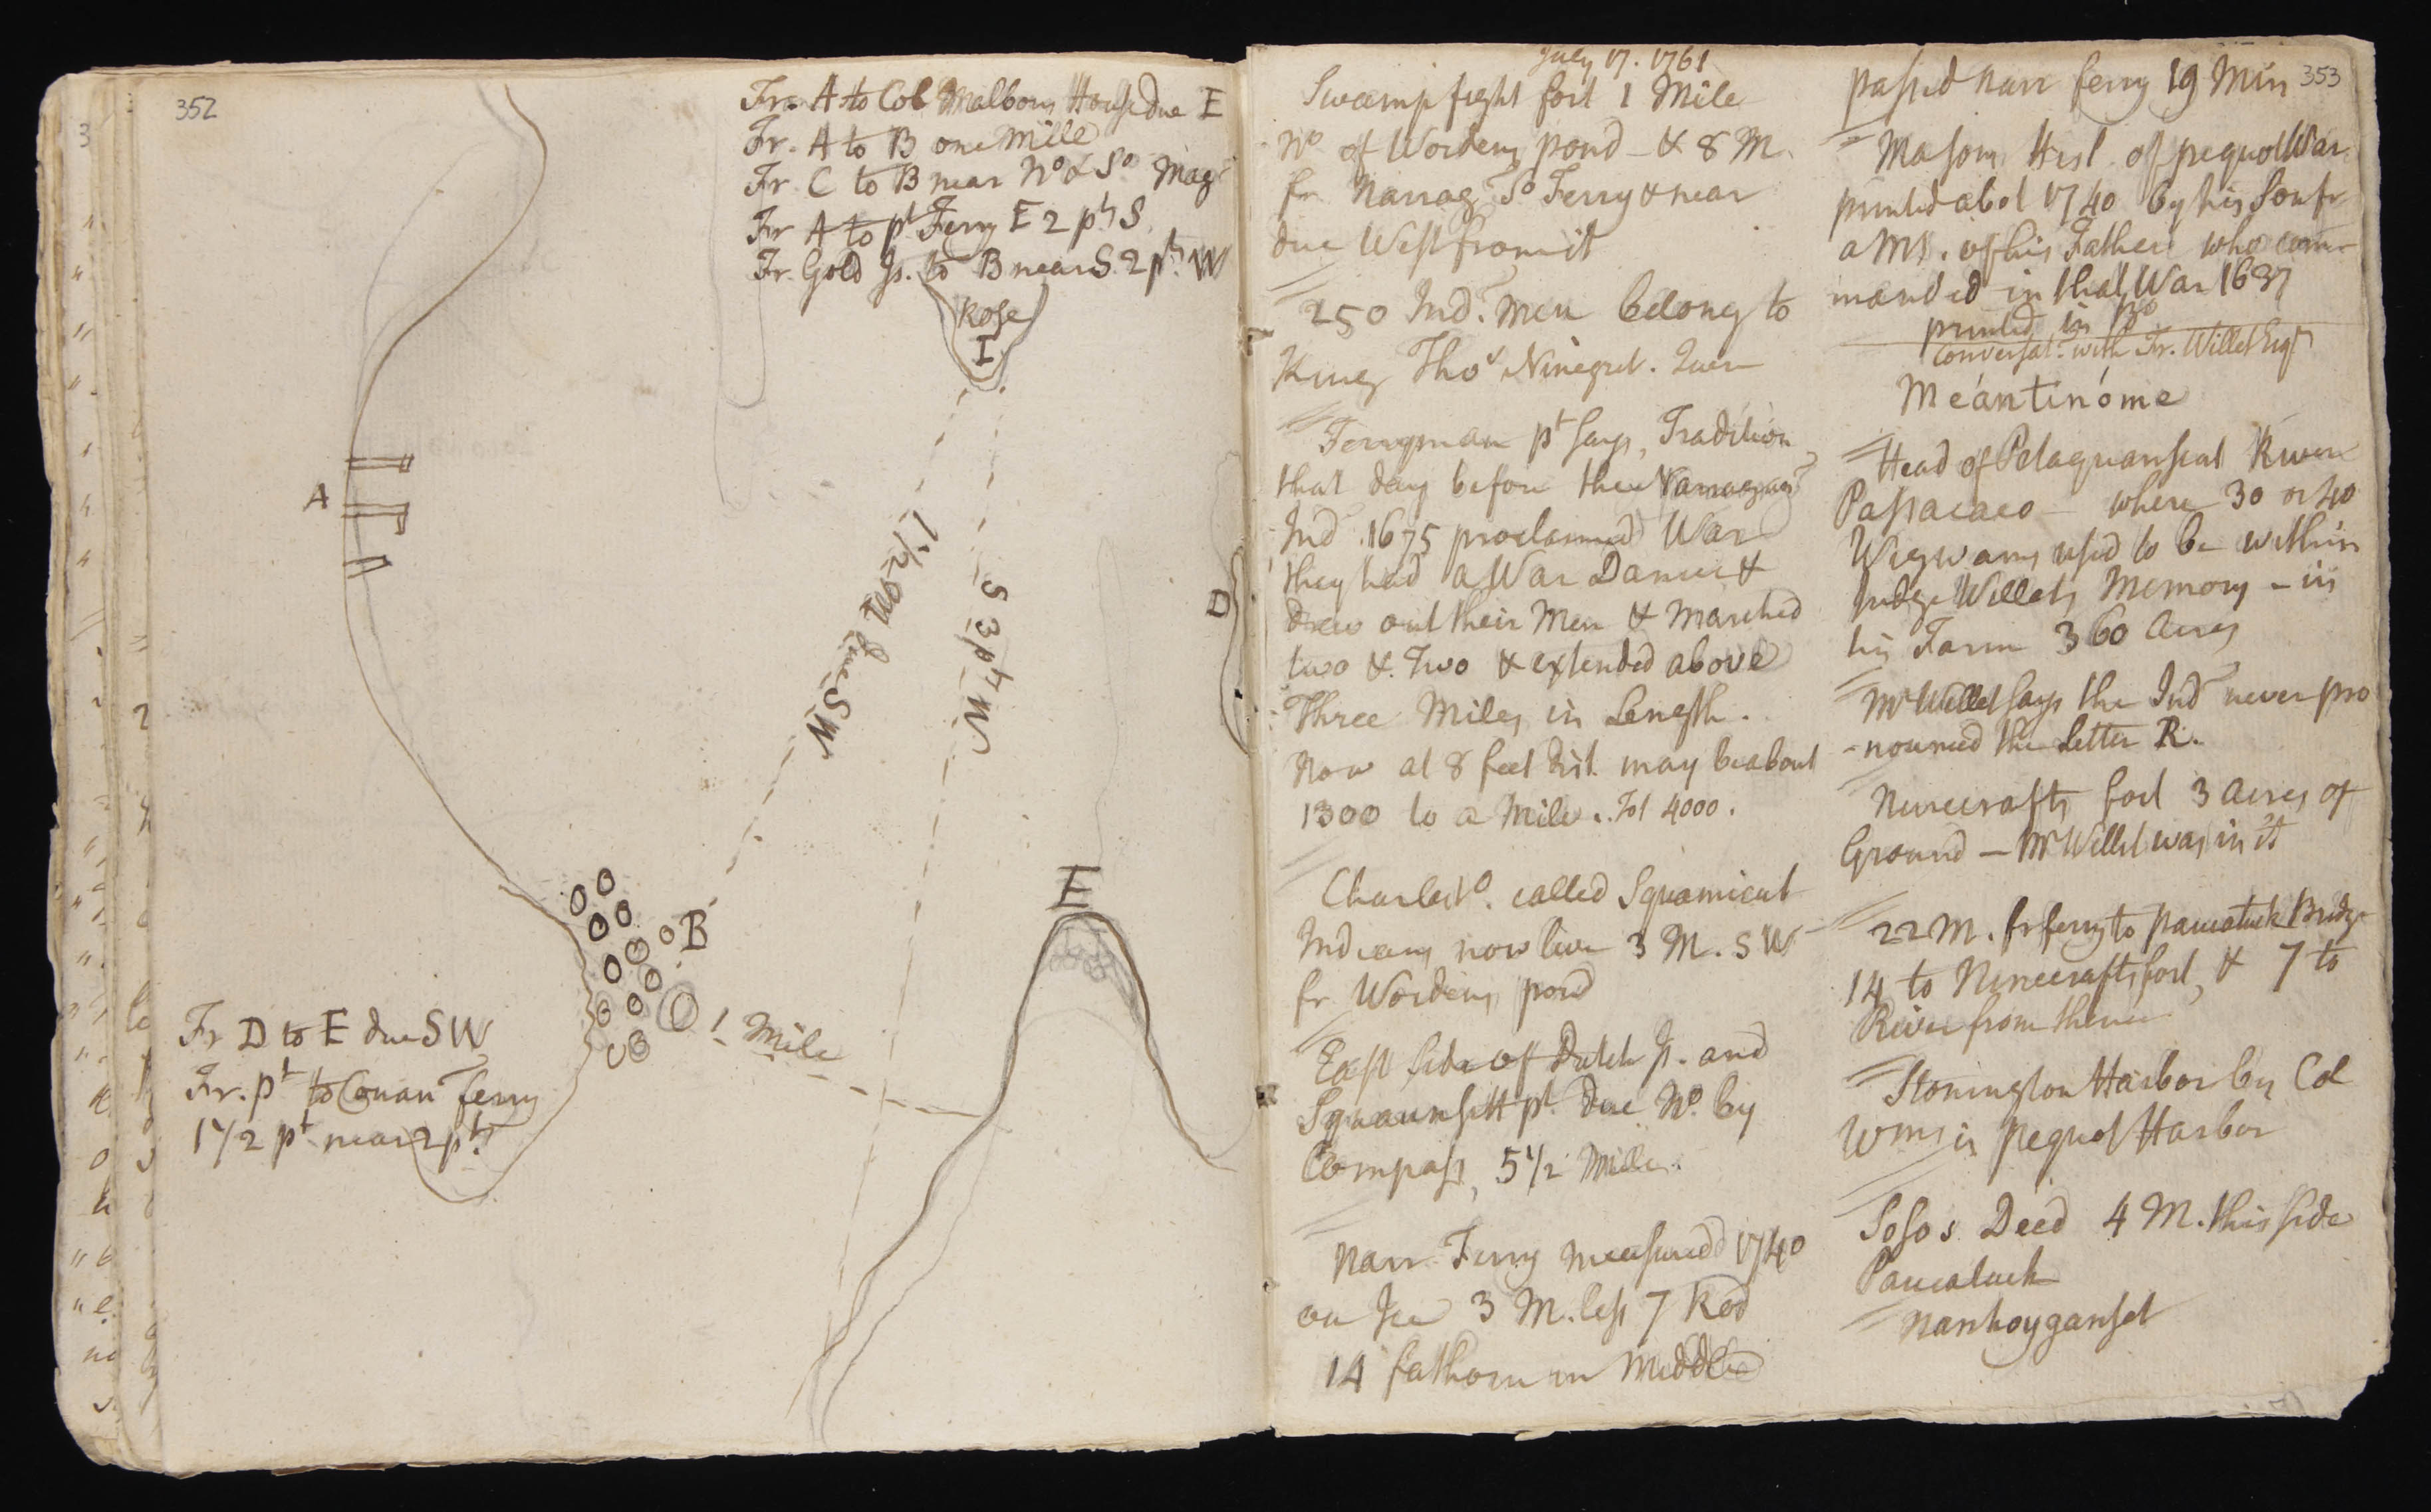 352
Fr. A to Col Malbons House due E
Fr. A to B one Mile
Fr. C to B near No & So Mag
Fr A to pt Ferry E 2 pts S.
Fr. Gold Is. to B near S. 2 pts W
Rose
I.
A
1 1/2 M
due SW
S 3 pts W
D
B
E
1 Mile
Fr D to E due SW
Fr. pt to Conan ferry
1 1/2 pt near 2 pts
July 17. 1761
Swamp fight fort 1 Mile
No of Wordens pond - & 8 M.
fr Narrag So Ferry & near
due West from it
250 Ind. Men belong to
King Thos Ninegret.
Ferryman pt says, Tradition
that day before the Narragans
Ind. 1675 proclaimed War
they had a War Dance &
drew out their Men & Marched
two & Two & extended above
Three Miles in Length.
Now at 8 feet dist. may be about
1300 to a Mile. Tot 4000.
Charlesto. called Squamicut
Indians now live 3 M. SW
fr Wordens pond
East side of Dutch Is. and
Squaunsitt pt. due No. by
Compass, 5 1/2 Miles.
Narr. Ferry measured 1740
on Ice 3 M. less 7 Rod
14 fathom in Middle
passed Narr ferry 19 Min 353
Masons Hist. of pequot War
printed abot 1740 by his Son fr
a MS. of his Father who com-
manded in that War 1637
printed in
Conversat. with Fr. Willet Esqr
Meántinóme
Head of Petaquamscut River
Passacaco - where 30 or 40
Wigwams used to be within
Judge Willets Memory - in
his Farm 360 Acres
Mr Willet says the Ind never pro
-nounced the Letter R.
Ninecrafts fort 3 acres of
Ground - Mr Willet was in it
22 M. fr ferry to Paucatuck Bridge
14 to Ninecrafts fort, & 7 to
River from thence
Stonington Harbor by Col
Wms is Pequot Harbor
Sosos Deed 4 M. this side
Paucatuck
Nanhoyganset